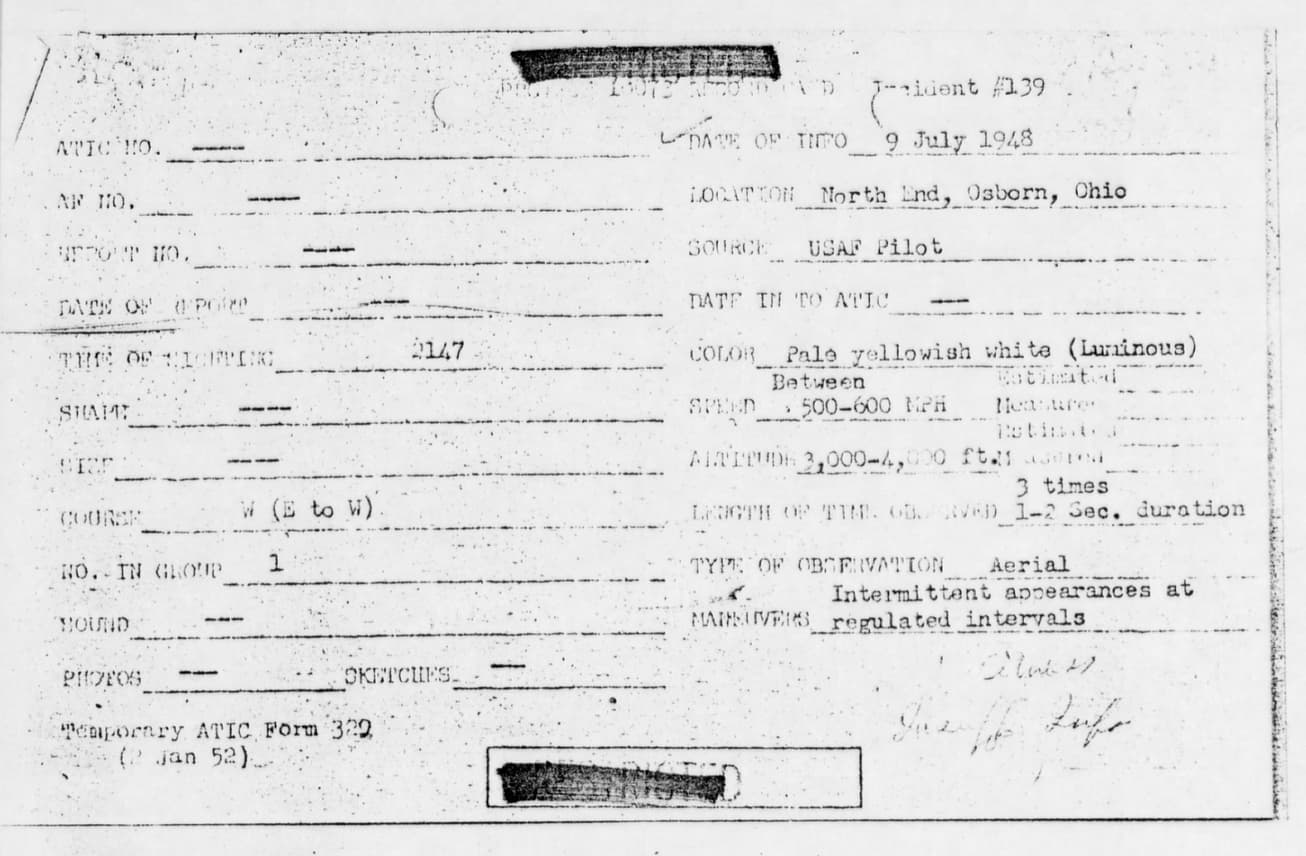 PROJECT 10073 RECORD CARD Incident #139
ATIC NO. ---- DATE OF INFO 9 July 1948
AF NO. ---- LOCATION North End, Osborn, Ohio
REPORT NO. ---- SOURCE USAF Pilot
DATE OF REPORT --- DATE IN TO ATIC ---
TIME OF SIGHTING 2147 COLOR Pale yellowish white (Luminous)
Between Estimated
SHAPE ---- SPEED 500-600 MPH Measured
Estimated
SIZE ---- ALTITUDE 3,000-4,000 ft. Measured
3 times
COURSE W (E to W) LENGTH OF TIME OBSERVED 1-2 Sec. duration
NO. IN GROUP 1 TYPE OF OBSERVATION Aerial
Intermittent appearances at
SOUND --- MANEUVERS regulated intervals
PHOTOS --- SKETCHES ---
Insuff Info
Temporary ATIC Form 329
(2 Jan 52)
RESTRICTED